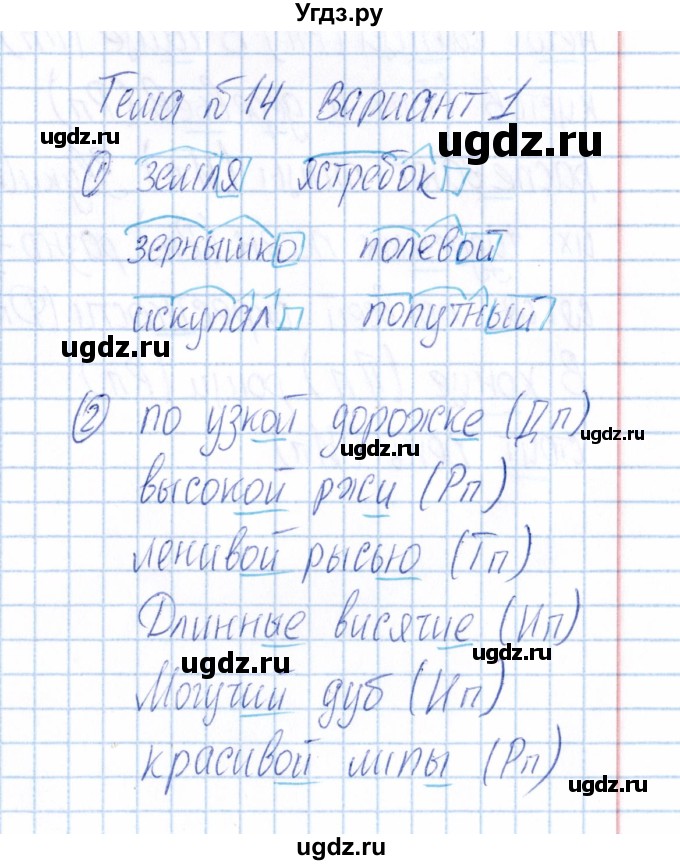 Угдз.ру
Тема №14 Вариант 1
ugdz.ru ugdz.ru
① земля ястребок
зернышко полевой
искупал попутный
ugdz.ru
② по узкой дорожке (Дп)
ugdz.ru ugdz.ru
высокой ржи (Рп)
ленивой рысью (Тп)
ugdz.ru
Длинные висячие (Ип)
ugdz.ru ugdz.ru
Могучий дуб (Ип)
красивой липы (Рп)
ugdz.ru ugdz.ru
ugdz.ru